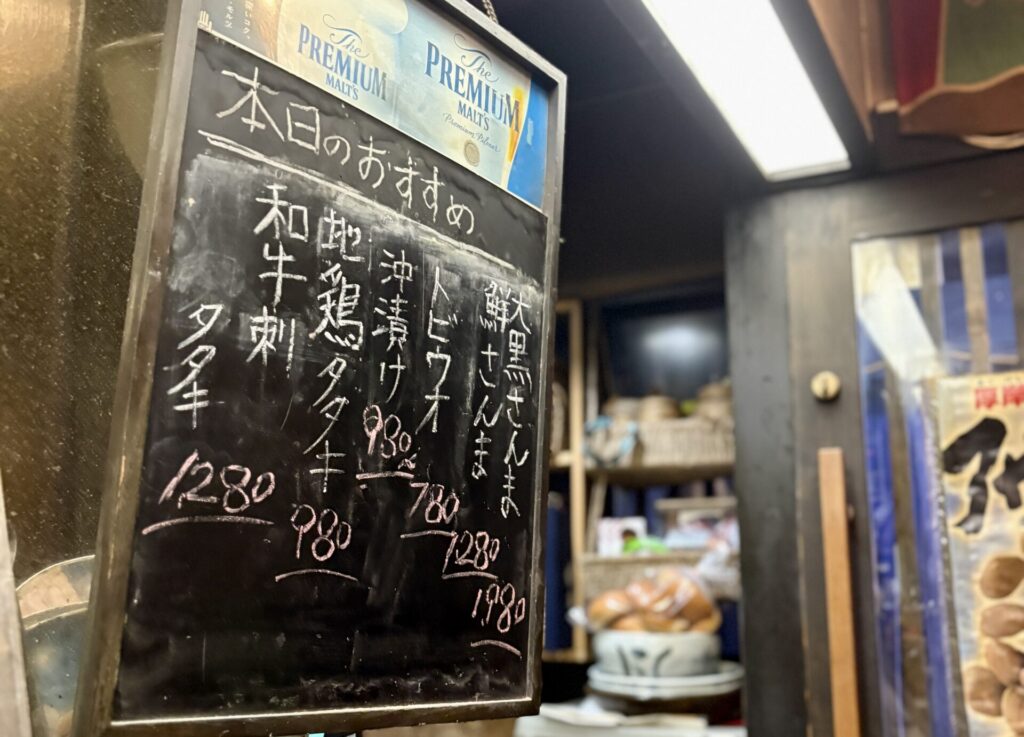 The
PREMIUM
MALT'S
The
PREMIUM
MALT'S
Premium Pilsner
本日のおすすめ
大黒さんま
1,980
鮮さんま
1,280
トビウオ
780
沖漬け
980
地鶏タタキ
980
和牛刺
タタキ
1,280